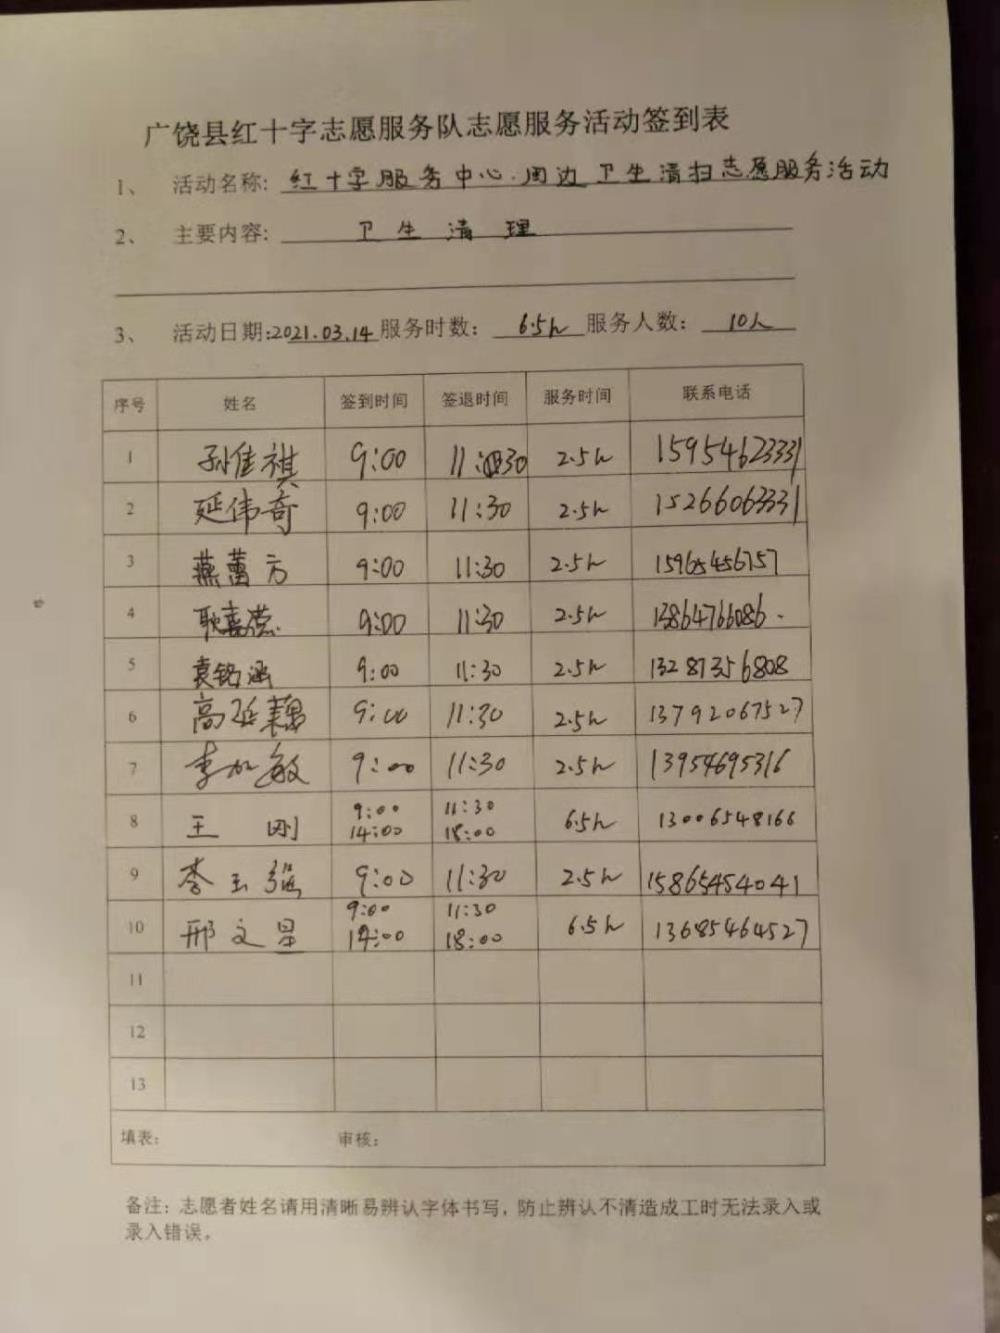 广饶县红十字志愿服务队志愿服务活动签到表
1、 活动名称: 红十字服务中心.周边卫生清扫志愿服务活动
2、 主要内容: 卫生清理
3、 活动日期:2021.03.14 服务时数: 6.5h 服务人数: 10人
序号 姓名 签到时间 签退时间 服务时间 联系电话
1 孙佳祺 9:00 11:30 2.5h 15954623331
2 延伟奇 9:00 11:30 2.5h 15266063331
3 燕蕾方 9:00 11:30 2.5h 15965456757
4 耿嘉 9:00 11:30 2.5h 13864766086.
5 袁铭涵 9:00 11:30 2.5h 13287356808
6 高延 9:00 11:30 2.5h 13792067527
7 李加敏 9:00 11:30 2.5h 13954695316
8 王刚 9:00 14:00 11:30 18:00 6.5h 13006548166
9 李玉强 9:00 11:30 2.5h 15865454041
10 邢文星 9:00 14:00 11:30 18:00 6.5h 13685464527
11
12
13
填表: 审核:
备注:志愿者姓名请用清晰易辨认字体书写,防止辨认不清造成工时无法录入或
录入错误。